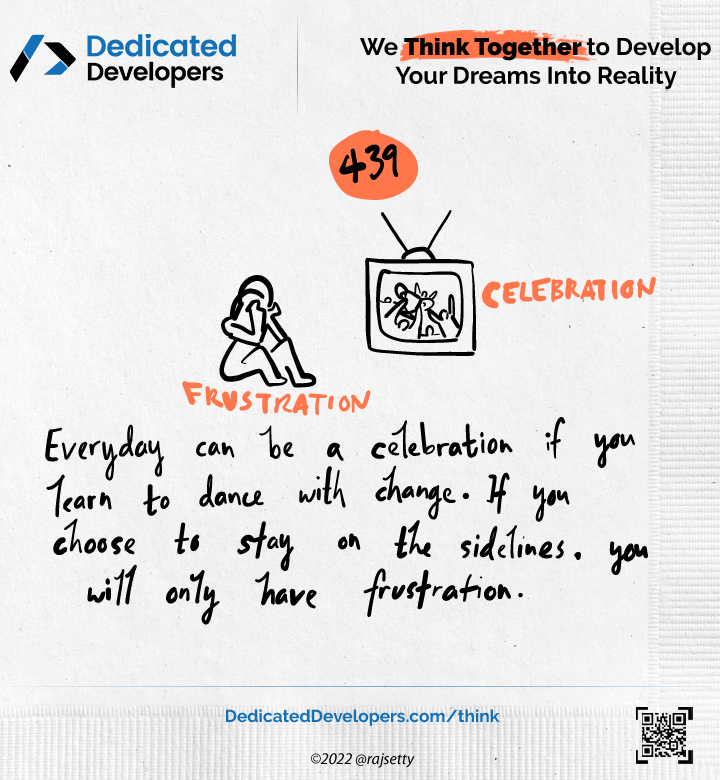 Dedicated
Developers
We Think Together to Develop
Your Dreams Into Reality
439
CELEBRATION
FRUSTRATION
Everyday can be a celebration if you
learn to dance with change. If you
choose to stay on the sidelines. you
will only have frustration.
DedicatedDevelopers.com/think
©2022 @rajsetty